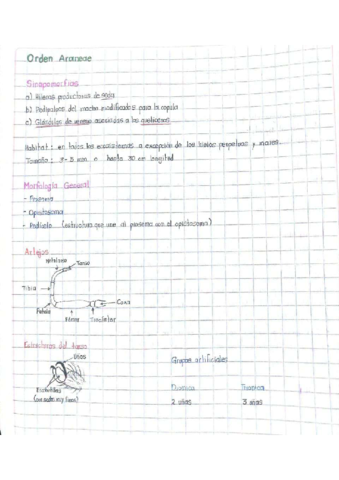 Orden Araneae
Sinapomorfías
a) Hileras productoras de seda
b) Pedipalpos del macho modificados para la copula
c) Glándulas de veneno asociadas a los quelíceros
Habitat: en todos los ecosistemas a excepción de los hielos perpetuos y mares.
Tamaño: mm o hasta 30 cm de longitud
Morfología General
- Prosoma
- Opistosoma
- Pedicelo (estructura que une al prosoma con el opistosoma)
Artejos
Metatarso
Tarso
Tibia
Patela
Fémur
Trocánter
Coxa
Estructuras del tarso
Uñas
Escópulas
(son sedas muy finas)
Grupos artificiales
Dionicha
Trionicha
2 uñas
3 uñas